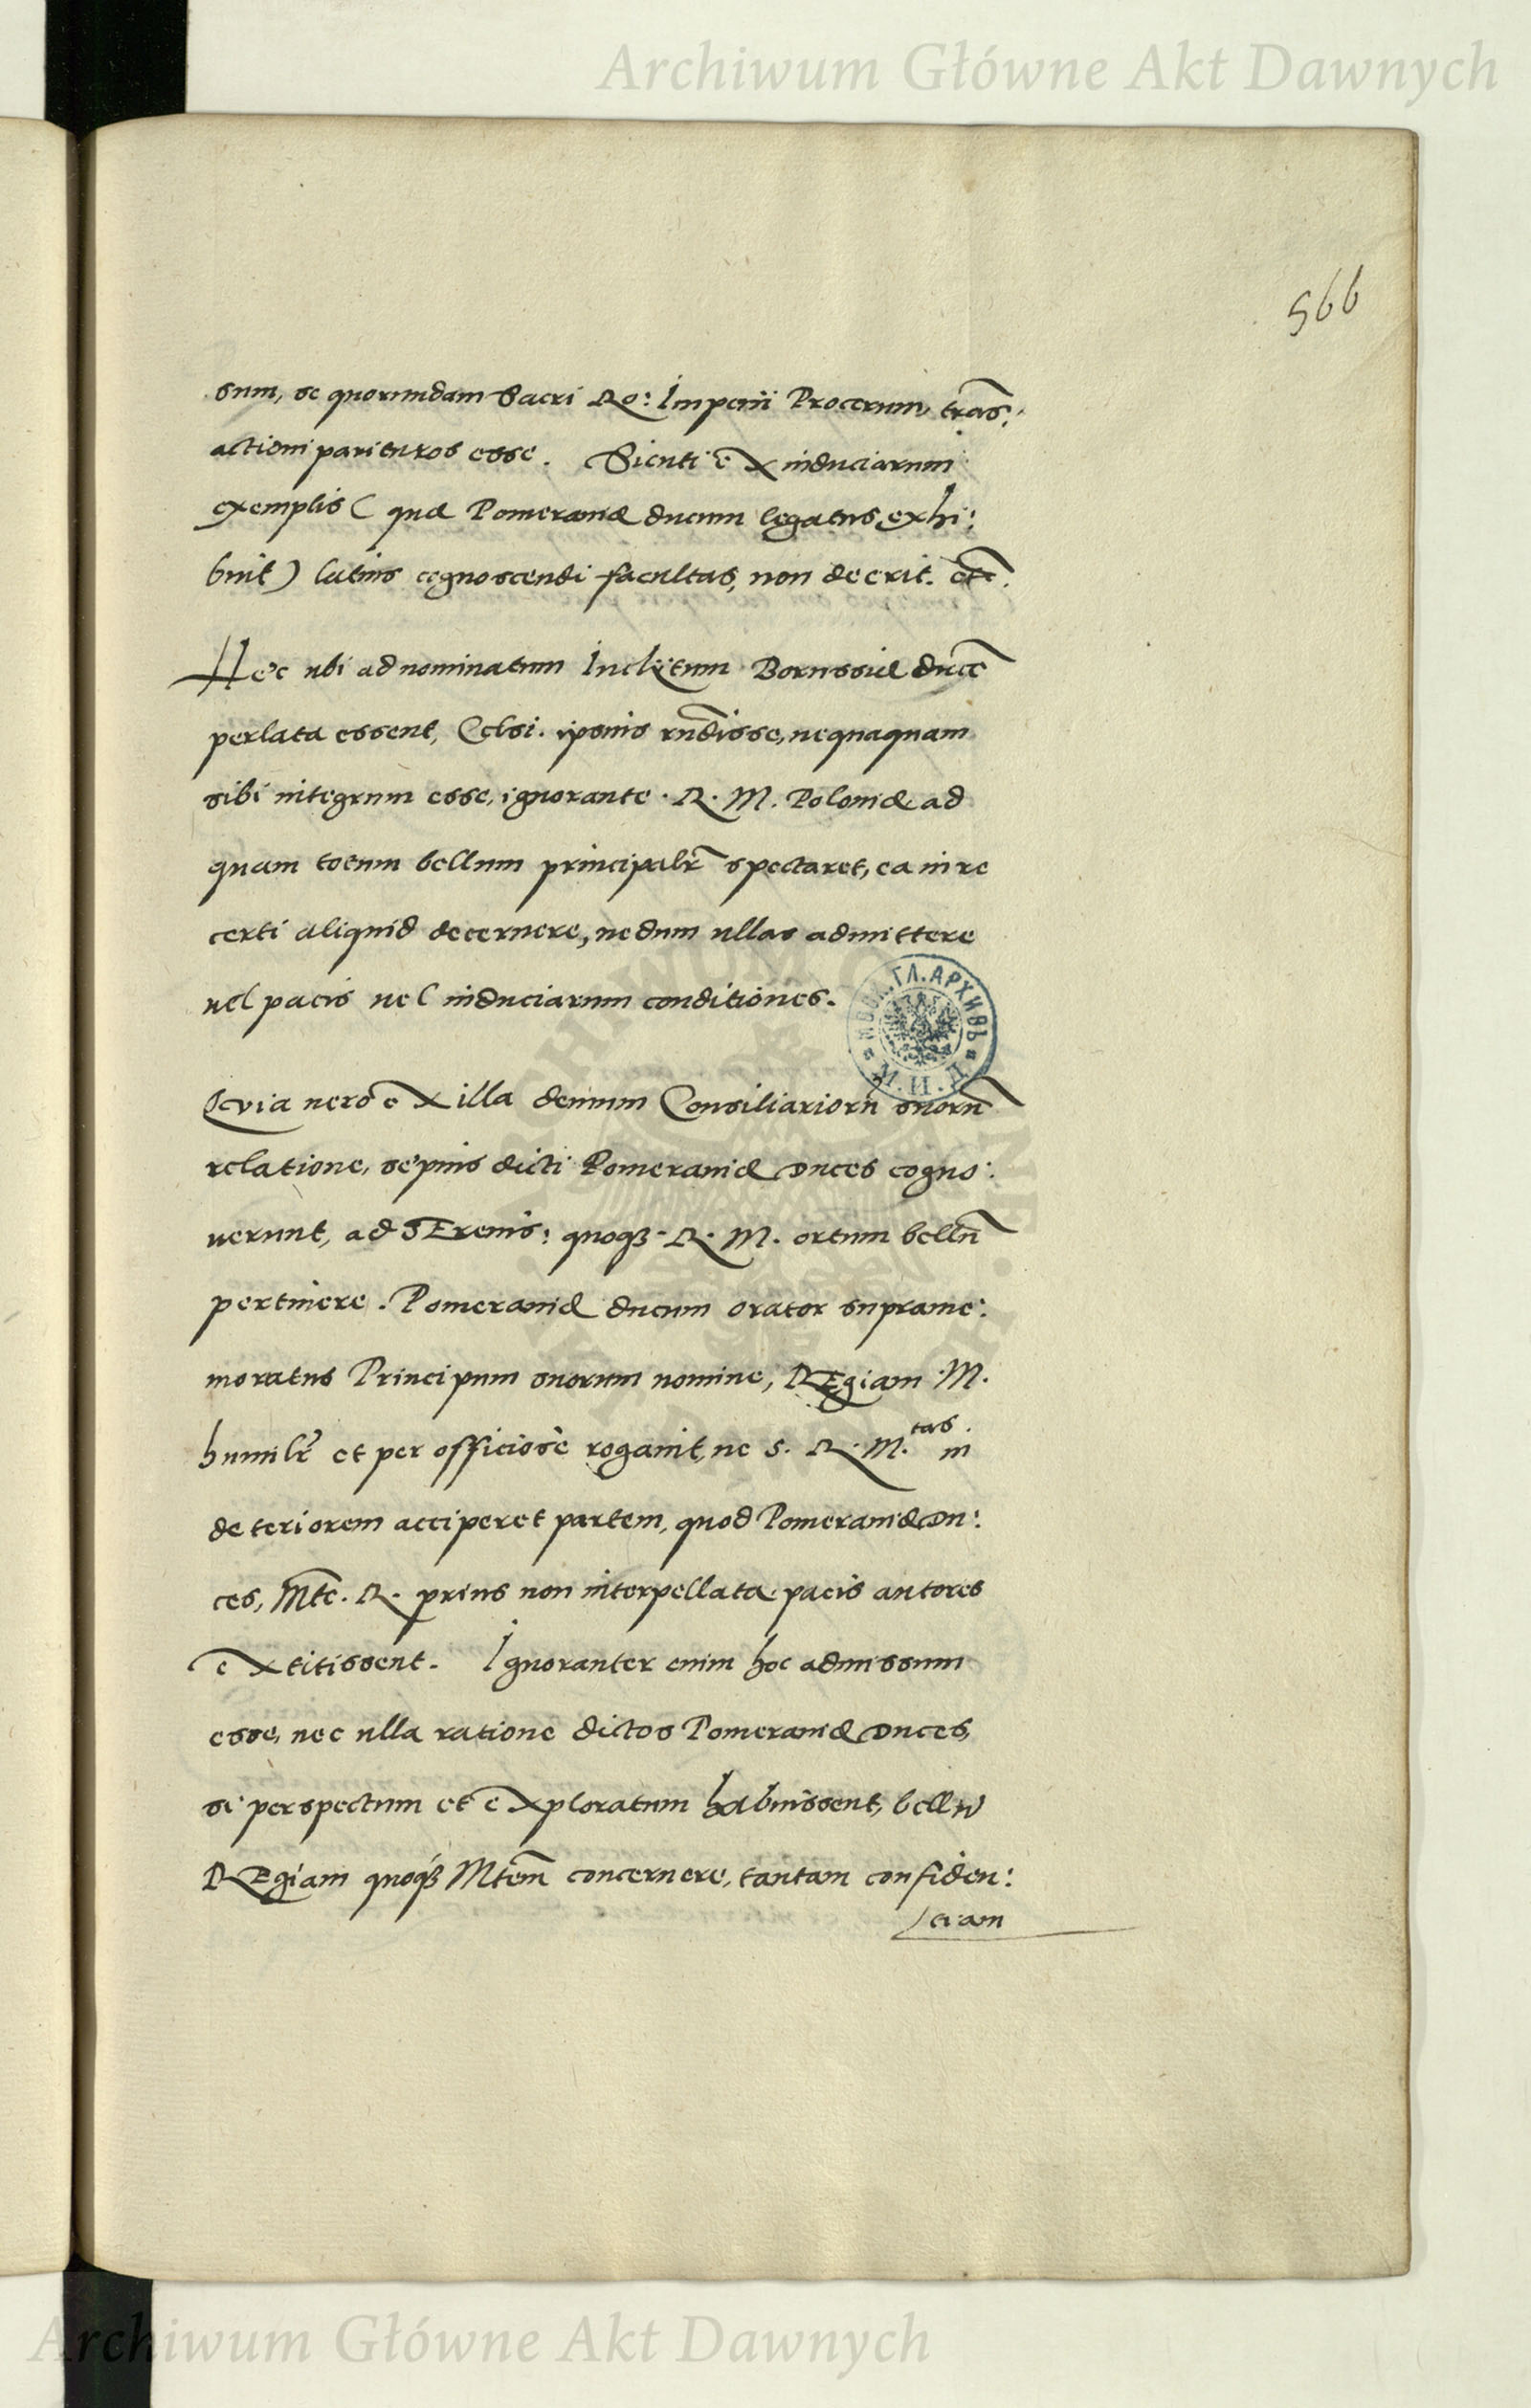 Archiwum Główne Akt Dawnych
566
sum, se quorumdam Sacri Ro: Imperii Procerum trãs:
actioni parituros esse. Sicuti ex induciarum
exemplis (quæ Pomeraniæ ducum legatus exhi:
buit) latius cognoscendi facultas, non deerit. etc.
Hec ubi ad nominatum Inclytum Borussiæ ducẽ
perlata essent, Celsi. ipsius rñdisse, nequaquam
sibi integrum esse, ignorante . R. M. Poloniæ ad
quam totum bellum principalr̃ spectaret, ea in re
certi aliquid decernere, nedum ullas admittere
uel pacis uel induciarum conditiones.
И ВОК. ГЛ. АРХИВЪ Ц. И. М.
Qvia uero ex illa demum Consiliariorũ suorũ
relatione, sepius dicti Pomeraniæ Duces cogno:
uerunt, ad SErenis: quoqꝫ . R. M. ortum bellũ
pertinere. Pomeraniæ ducum orator suprame:
moratus Principum suorum nomine, REgiam M.
humilr̃ et per officiosè rogauit, ne S. R. M.tas in
deteriorem acciperet partem, quod Pomeraniæ Du:
ces, Mte. R. prius non interpellata pacis autores
extitissent. Ignoranter enim hoc admissum
esse, nec ulla ratione dictos Pomeraniæ Duces,
si perspectum et exploratum habuissent, bellũ
REgiam quoqꝫ Mtem̃ concernere, tantam confiden:
tiam
Archiwum Główne Akt Dawnych